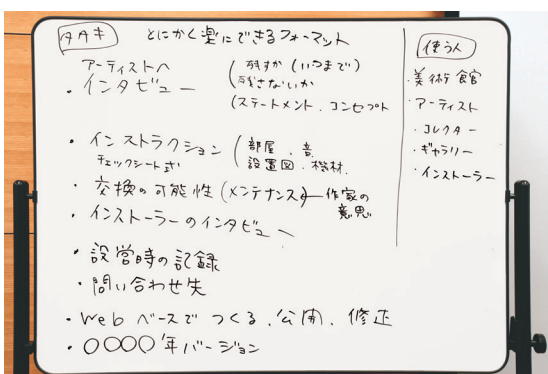 タタキ とにかく楽にできるフォーマット
アーティストへ
・インタビュー
(残すか(いつまで)
残さないか
(ステートメント、コンセプト
・インストラクション
チェックシート式
(部屋、音
設置図、機材
・交換の可能性(メンテナンス)←作家の
意思
・インストーラーのインタビュー
・設営時の記録
・問い合わせ先
・Webベースでつくる、公開、修正
・〇〇〇〇年バージョン
使う人
・美術館
・アーティスト
・コレクター
・ギャラリー
・インストーラー